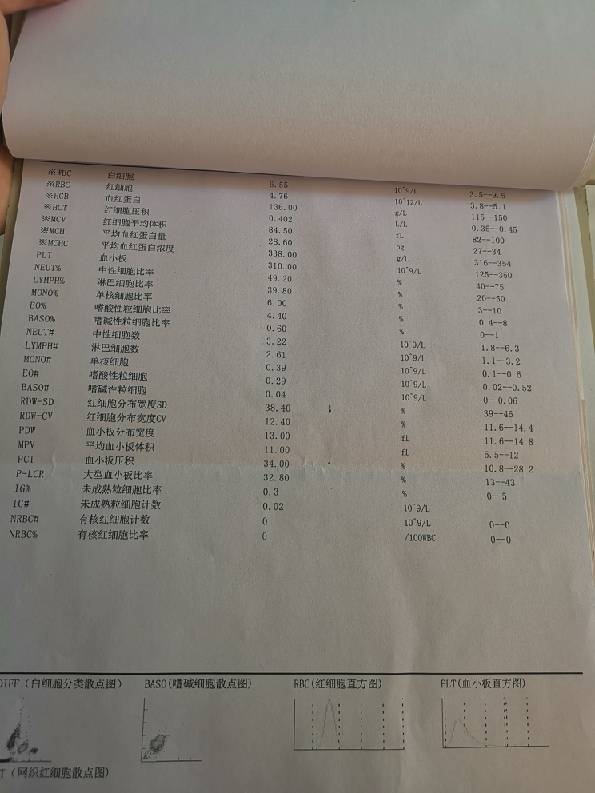 ※WBC 白细胞 6.55 10^9/L 3.5--9.5
※RBC 红细胞 4.76 10^12/L 3.8--5.1
※HGB 血红蛋白 136.00 g/L 115--150
※HCT 红细胞压积 0.402 L/L 0.35--0.45
※MCV 红细胞平均体积 84.50 fL 82--100
※MCH 平均血红蛋白量 28.60 pg 27--34
※MCHC 平均血红蛋白浓度 338.00 316--354
PLT 血小板 310.00 10^9/L 125--350
NEUT% 中性细胞比率 49.20 % 40--75
LYMPH% 淋巴细胞比率 39.80 % 20--50
MONO% 单核细胞比率 6.00 % 3--10
EO% 嗜酸性粒细胞比率 4.40 % 0.4--8
BASO% 嗜碱性粒细胞比率 0.60 % 0--1
NEUT# 中性细胞数 3.22 10^9/L 1.8--6.3
LYMPH# 淋巴细胞数 2.61 10^9/L 1.1--3.2
MONO# 单核细胞 0.39 10^9/L 0.1--0.6
EO# 嗜酸性粒细胞 0.29 10^9/L 0.02--0.52
BASO# 嗜碱性粒细胞 0.04 10^9/L 0--0.06
RDW-SD 红细胞分布宽度SD 38.40 39--46
RDW-CV 红细胞分布宽度CV 12.40 % 11.6--14.4
PDW 血小板分布宽度 13.00 % 11.6--14.8
MPV 平均血小板体积 11.00 fL
PCT 血小板压积 34.00 % 10.8--28.2
P-LCR 大型血小板比率 32.80 % 13--43
IG% 未成熟粒细胞比率 0.3 % 0--5
IG# 未成熟粒细胞计数 0.02 10^9/L
NRBC# 有核红细胞计数 0 10^9/L 0--0
NRBC% 有核红细胞比率 0 /100WBC 0--0
DIFF（白细胞分类散点图） BASO(嗜碱细胞散点图) RBC(红细胞直方图) PLT(血小板直方图)
T（网织红细胞散点图）